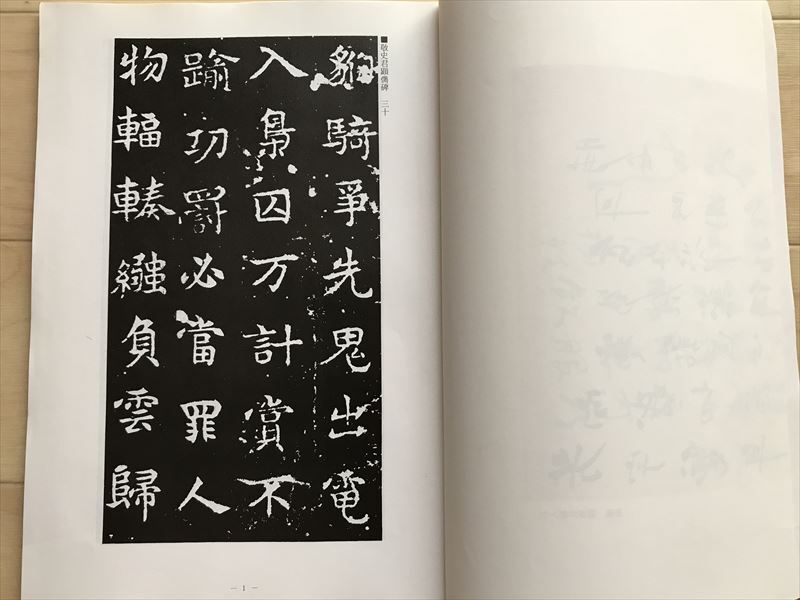 ■敬史君顕儁碑 三十
騎爭先鬼出電
入梟囚万計賞不
踰功罰必當罪人
物輻輳繈負雲歸
— 1 —